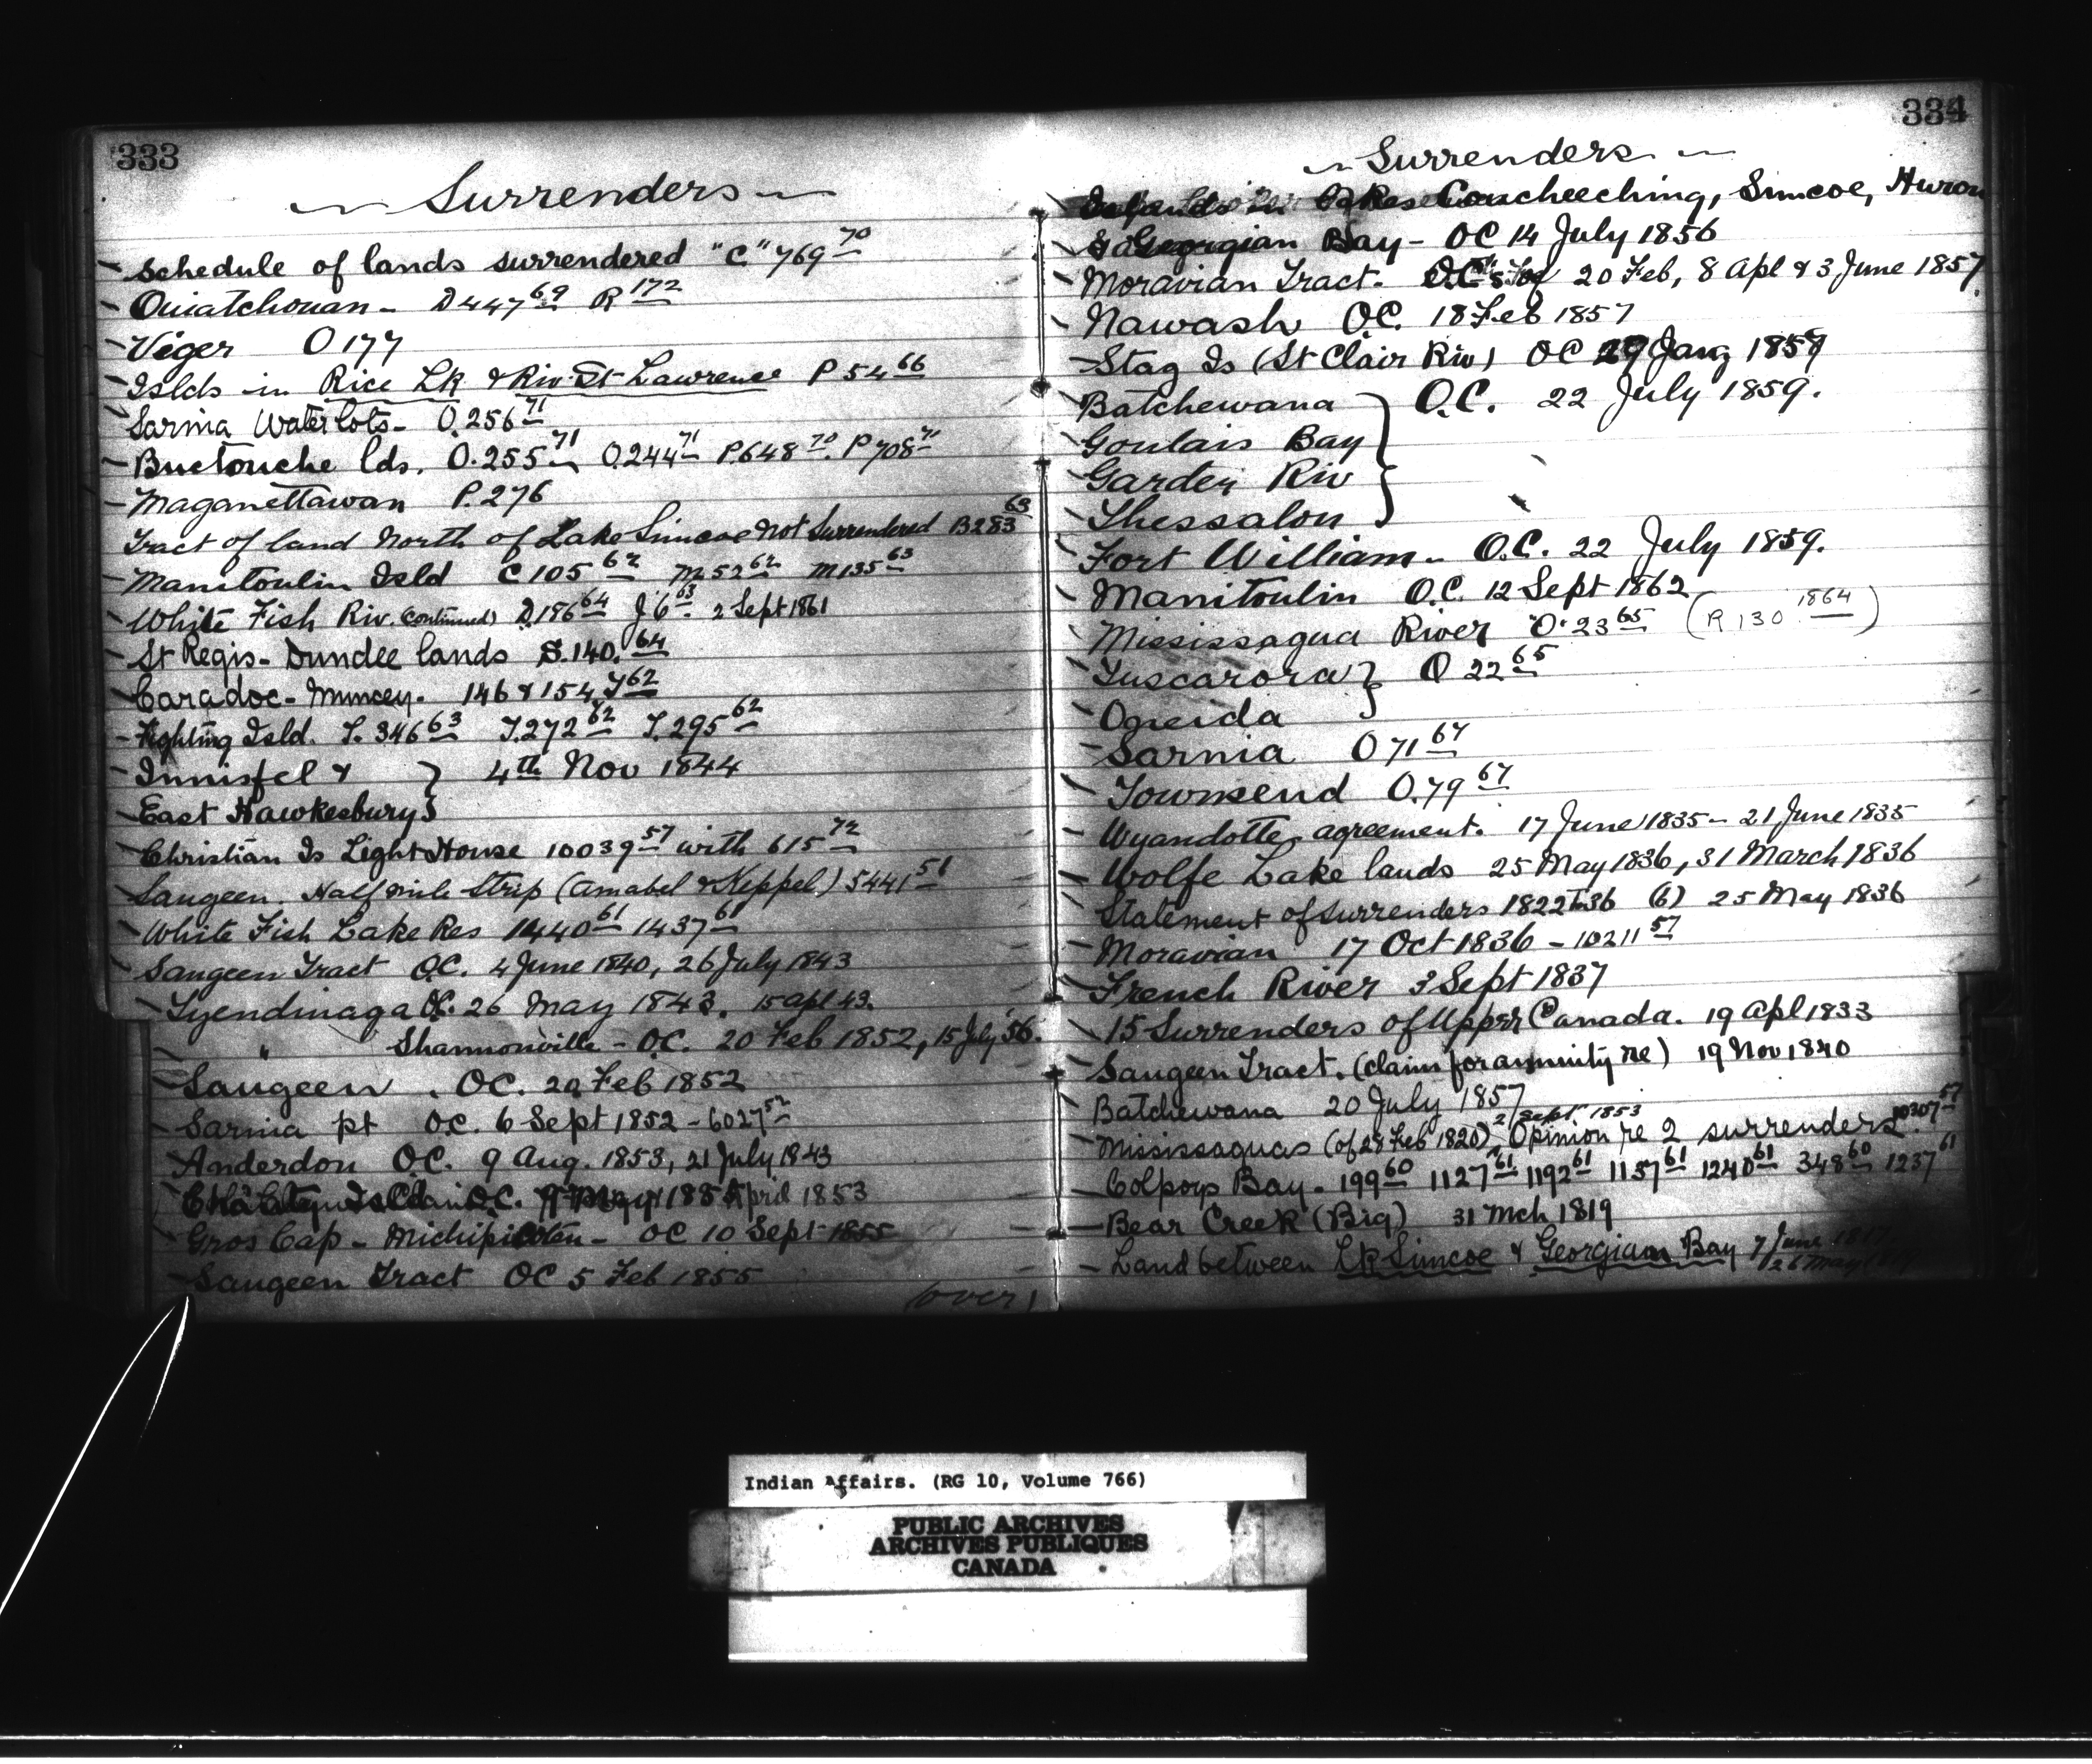 333
Surrenders
Schedule of lands surrendered "C" 769 70
Ouiatchouan - D 447 69 R 172
Viger O 177
Islds in Rice Lk & Riv St Lawrence P 54 66
Sarnia Water lots - O.256 71
Buctouche lds. O.255 71 O.244 71 P.648 70. P 708 71
Maganettawan P.276
Tract of land North of Lake Simcoe Not Surrendered B283 63
Manitoulin Isld C 105 62 M 52 62 M 135 63
White Fish Riv. (continued) D.186 64 J 6 63. 2 Sept 1861
St Regis - Dundee lands S.140. 64
Caradoc - Muncey. 146 & 154 J 62
Fighting Isld. T. 346 63 T.272 62 T.295 62
Innisfel & } 4th Nov 1844
East Hawkesbury }
Christian Is Light House 10039 57 with 615 72
Saugeen. Half mile Strip (Amabel & Keppel) 5441 51
White Fish Lake Res 1440 61 1437 61
Saugeen Tract O.C. 4 June 1840, 26 July 1843
Tyendinaga O.C. 26 May 1843. 15 apl 43.
" Shannonville - O.C. 20 Feb 1852, 15 July 56.
Saugeen. O.C. 20 Feb 1852
Sarnia pt O.C. 6 Sept 1852 - 6027 52
Anderdon O.C. 9 Aug. 1853, 21 July 1843
O.C. April 1853
Gros Cap - Michipicoten - OC 10 Sept 1855
Saugeen Tract OC 5 Feb 1855
(over)
334
Surrenders
Islands in Lakes Couscheeching, Simcoe, Huron
& Georgian Bay - OC 14 July 1856
Moravian Tract. OC's of 20 Feb, 8 Apl & 3 June 1857.
Nawash O.C. 18 Feb 1857
Stag Is (St Clair Riv) OC 29 Jany 1859
Batchewana } O.C. 22 July 1859.
Goulais Bay
Garden Riv
Thessalon }
Fort William - O.C. 22 July 1859.
Manitoulin O.C. 12 Sept 1862
Mississagua River O. 23 65 (R 130. 1864)
Tuscarora } O 22 65
Oneida
Sarnia O 71 67
Townsend O.79 67
Wyandotte agreement. 17 June 1835 - 21 June 1835
Wolfe Lake lands 25 May 1836, 31 March 1836
Statement of surrenders 1822 to 36 (6) 25 May 1836
Moravian 17 Oct 1836 - 10211 57
French River 2 Sept 1837
15 Surrenders of Upper Canada. 19 Apl 1833
Saugeen Tract. (claim for annuity re) 19 Nov 1840
Batchewana 20 July 1857
Mississaguas (of 28 Feb 1820) 2 Sept 1853 Opinion re 2 surrenders. 10307 57
Colpoys Bay - 199 60 1127 61 1192 61 1157 61 1240 61 348 60 1237 61
Bear Creek (Big) 31 Mch 1819
Land between Lk Simcoe & Georgian Bay 7 June 1817
26 May
Indian Affairs. (RG 10, Volume 766)
PUBLIC ARCHIVES
ARCHIVES PUBLIQUES
CANADA